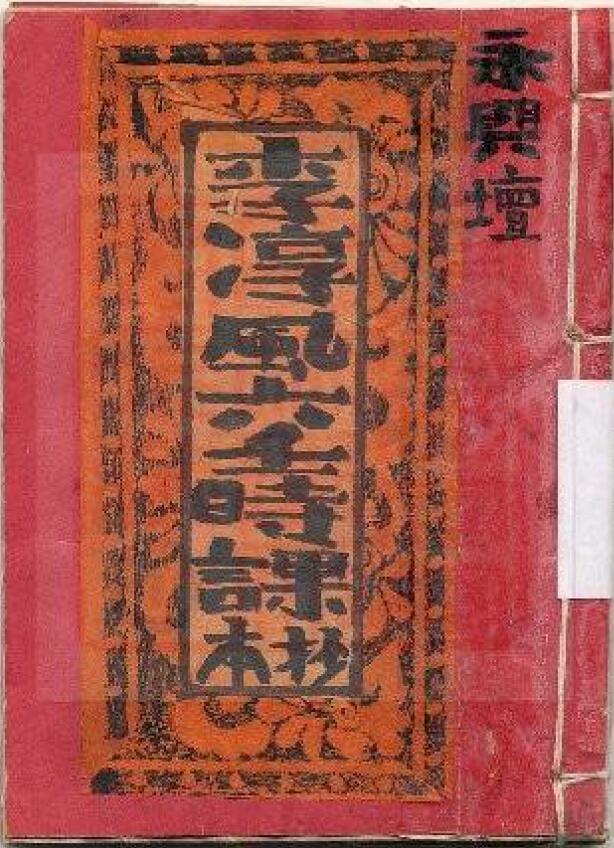 永興壇
李淳風六壬時課抄本